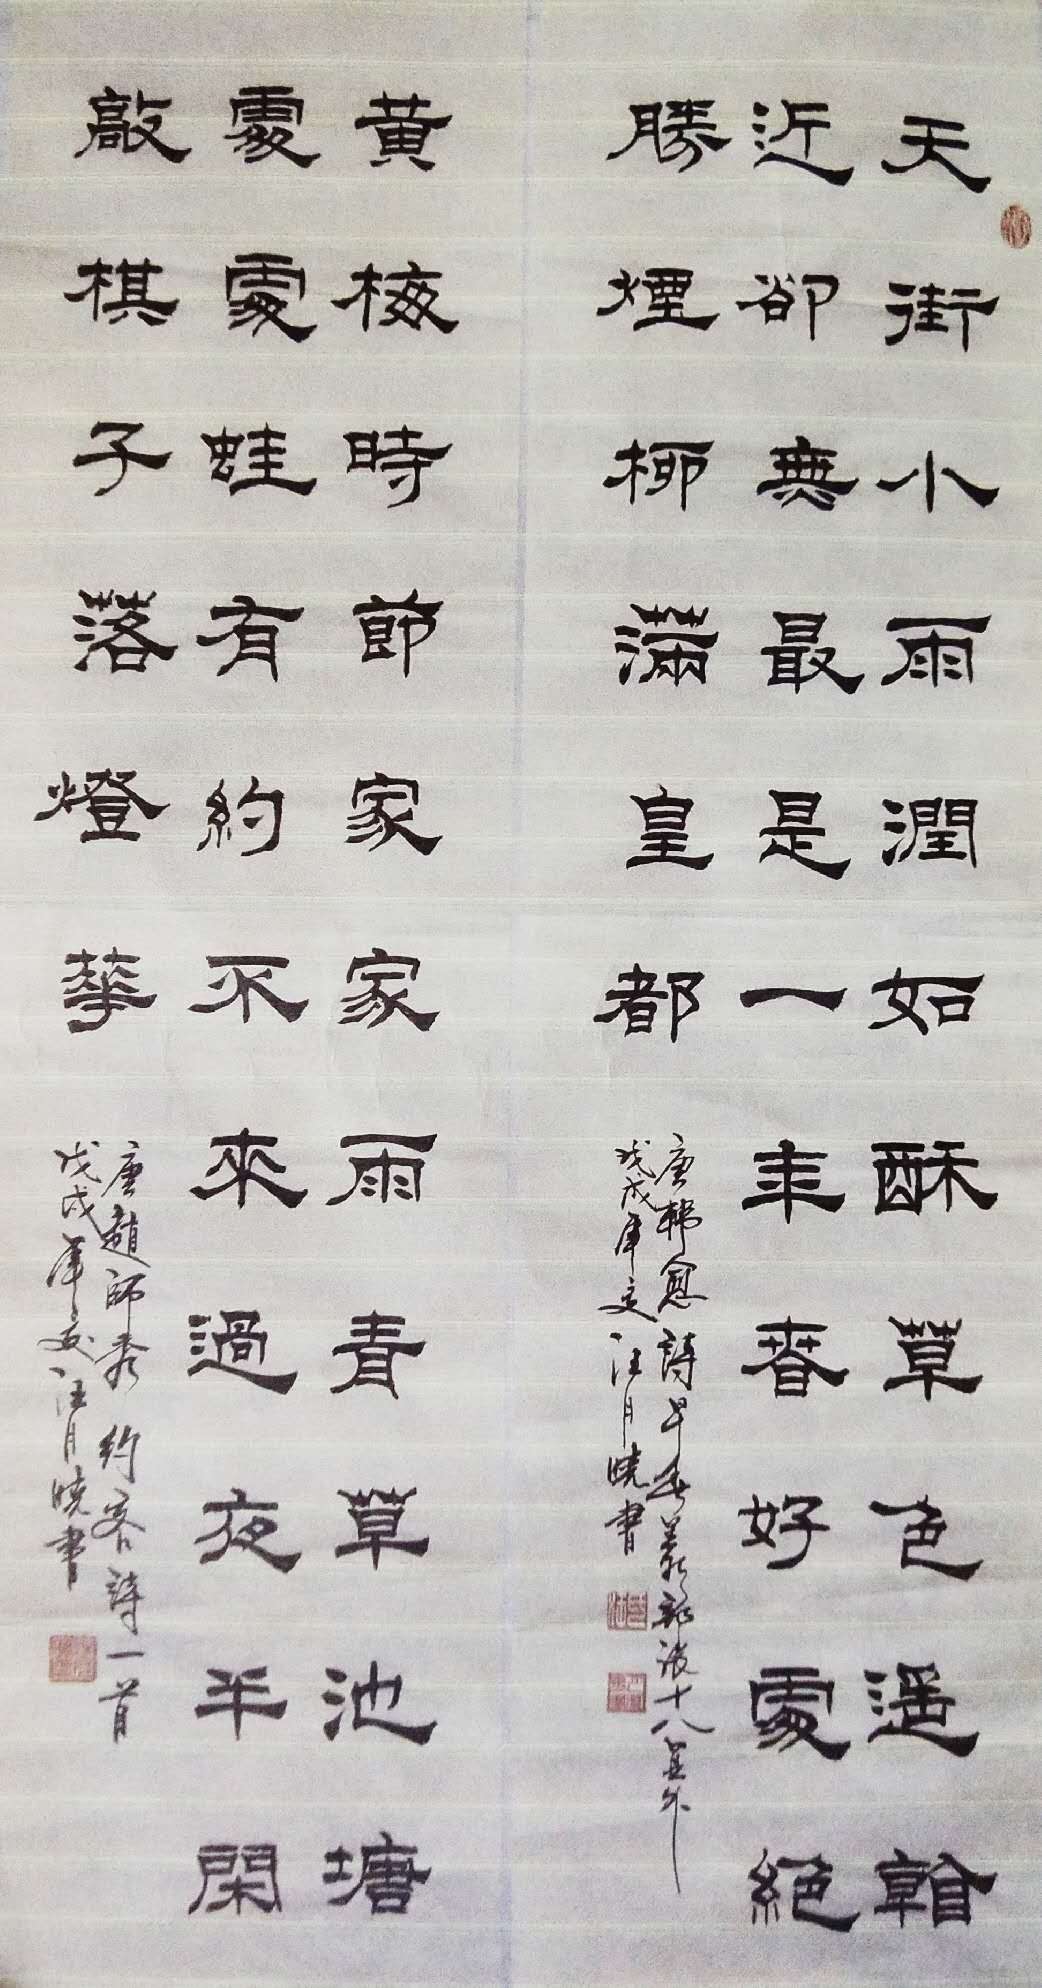 天街小雨潤如酥草色遥看
近卻無最是一年春好處絕
勝煙柳滿皇都
唐韓愈詩早春呈水部張十八員外
戊戌年夏汪月曉書
黃梅時節家家雨青草池塘
處處蛙有約不來過夜半閑
敲棋子落燈華
唐趙師秀約客詩一首
戊戌年夏汪月曉書